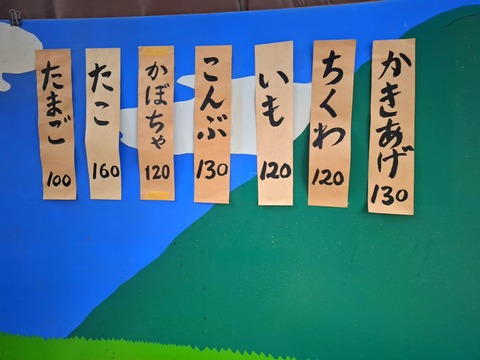 かきあげ
130
ちくわ
120
いも
120
こんぶ
130
かぼちゃ
120
たこ
160
たまご
100